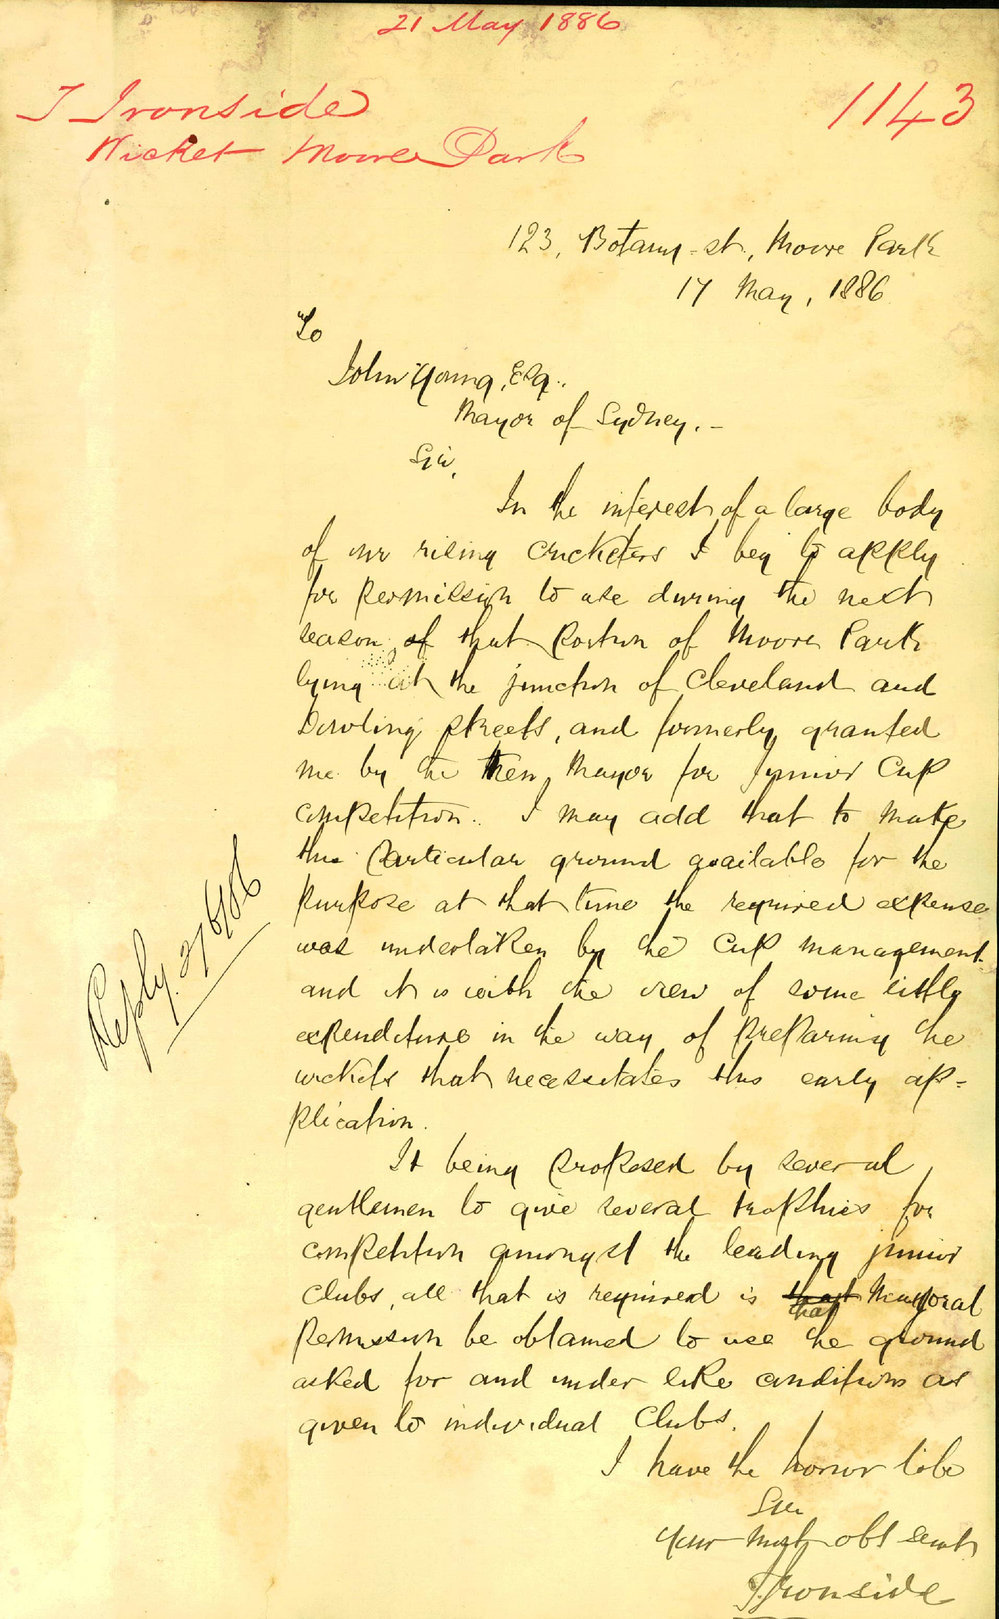 21 May 1886
T Ironside
1143
Wicket Moore Park
123, Botany-st., Moore Park
17 May, 1886
To
John Young, Esq.,
Mayor of Sydney.-
Sir,
In the interest of a large body
of our rising cricketers I beg to apply
for permission to use during the next
season of that portion of Moore Park
lying at the junction of Cleveland and
Dowling streets, and formerly granted
me by the then Mayor for Junior Cup
competition. I may add that to make
this particular ground available for the
purpose at that time the required expense
was undertaken by the Cup management
and it is with the view of some little
expenditure in the way of preparing the
wickets that necessitates this early ap=
plication.
Reply. 27/5/86
It being proposed by several
gentlemen to give several trophies for
competition amongst the leading junior
Clubs, all that is required is that Mayoral
that
permission be obtained to use the ground
asked for and under like conditions as
given to individual Clubs.
I have the honor to be
Sir
Your most obt servt
T. Ironside